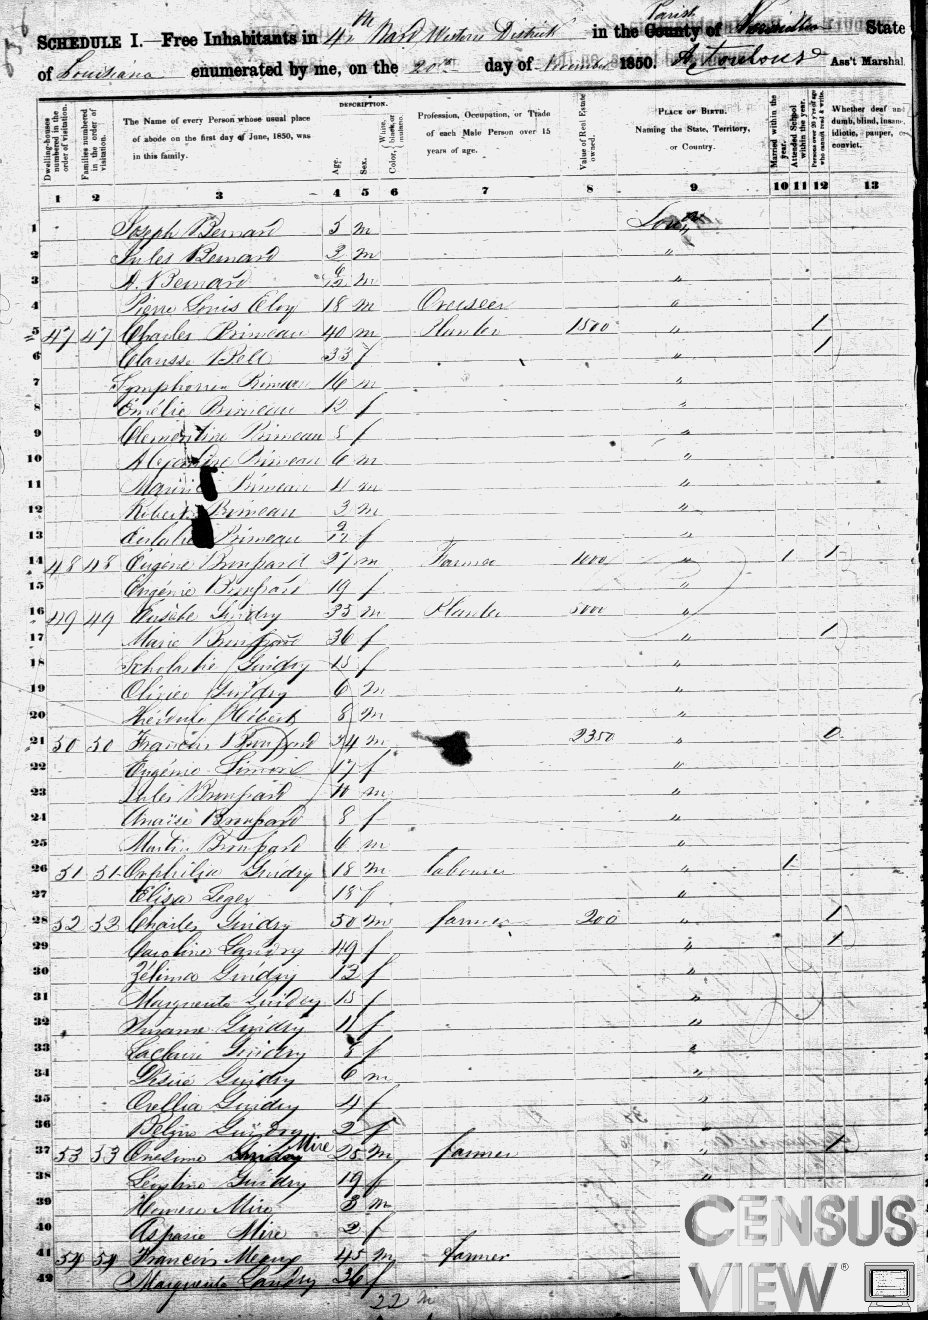 SCHEDULE I.—Free Inhabitants in 4th Ward Western District in the County of Parish Vermilion State
of Louisiana enumerated by me, on the 20th day of November 1850. A. Toulous Ass't Marshal.
Dwelling-houses numbered in the order of visitation.
Families numbered in the order of visitation.
The Name of every Person whose usual place of abode on the first day of June, 1850, was in this family.
DESCRIPTION.
Age.
Sex.
Color, White, black, or mulatto.
Profession, Occupation, or Trade of each Male Person over 15 years of age.
Value of Real Estate owned.
PLACE OF BIRTH. Naming the State, Territory, or Country.
Married within the year.
Attended School within the year.
Persons over 20 y'rs of age who cannot read & write.
Whether deaf and dumb, blind, insane, idiotic, pauper, or convict.
1 2 3 4 5 6 7 8 9 10 11 12 13
1 Joseph Bernard 5 m
2 Jules Bernard 3 m "
3 A. Bernard 6/12 m "
4 Pierre Louis Eloy 18 m Overseer "
5 47 47 Charles Primeau 40 m Planter 1500 " 1
6 Clarisse Bell 33 f " 1
7 Symphorien Primeau 16 m "
8 Emélie Primeau 12 f "
9 Clementine Primeau 8 f "
10 Primeau 6 m "
11 Primeau 4 m "
12 Robert Primeau 3 m "
13 Eulalie Primeau 2/12 f "
14 48 48 Eugène Broussard 27 m Farmer 1000 " 1 1
15 Eugénie Broussard 19 f "
16 49 49 Guidry 35 m Planter 5000 "
17 Marie Broussard 36 f " 1
18 Scholastie Guidry 15 f "
19 Olivier Guidry 6 m "
20 Hébert 8 m "
21 50 50 Francois Broussard 54 m 2350 " 0
22 Eugénie Simon 17 f "
23 Jules Broussard 10 m "
24 Anaïse Broussard 8 f "
25 Martin Broussard 6 m "
26 51 51 Onphilia Guidry 18 m labourer " 1
27 Elisa Leger 18 f "
28 52 52 Charles Guidry 50 m farmer 200 " 1
29 Caroline Landry 49 f " 1
30 Zélima Guidry 13 f "
31 Marguerite Guidry 15 f "
32 Susanne Guidry 11 f "
33 Guidry 8 f "
34 Désiré Guidry 6 m "
35 Orellia Guidry 4 f "
36 Guidry 2 f "
37 53 53 Onesime Mire 25 m farmer " 1
38 Leontine Guidry 19 f "
39 Homere Mire 3 m
40 Aspasie Mire 2 f
41 54 54 Francois Meaux 45 m farmer
42 Marguerite Landry 36 f
22 m
CENSUS
VIEW®